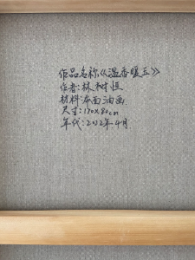 作品名称《温香暖玉》
作者:林树恒
材料:布面油画
尺寸:120×80cm
年代:2012年4月